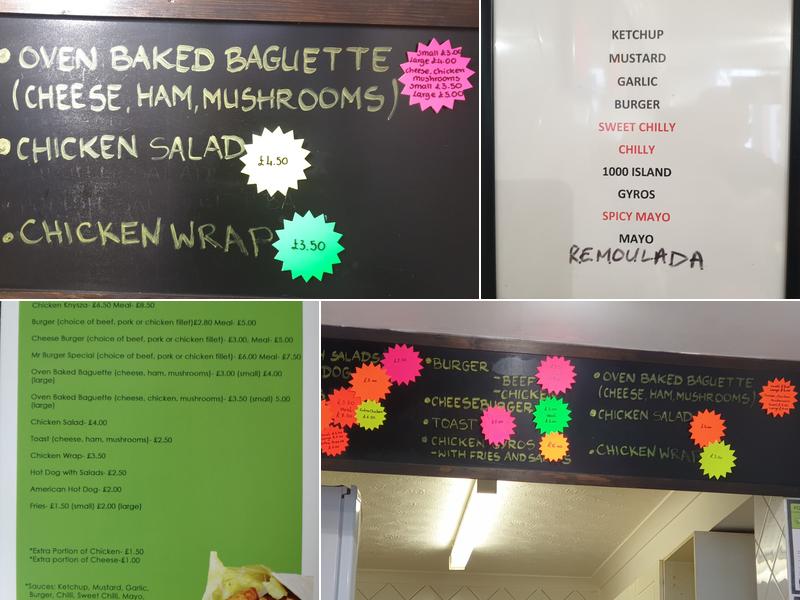 • OVEN BAKED BAGUETTE
(CHEESE, HAM, MUSHROOMS)
small £3.00
large £4.00
cheese, chicken
mushrooms
small £3.50
large £5.00
• CHICKEN SALAD
£4.50
• CHICKEN WRAP
£3.50
KETCHUP
MUSTARD
GARLIC
BURGER
SWEET CHILLY
CHILLY
1000 ISLAND
GYROS
SPICY MAYO
MAYO
REMOULADA
Chicken Knysza- £6.50 Meal- £8.50
Burger (choice of beef, pork or chicken fillet)£2.80 Meal- £5.00
Cheese Burger (choice of beef, pork or chicken fillet)- £3.00, Meal- £5.00
Mr Burger Special (choice of beef, pork or chicken fillet)- £6.00 Meal- £7.50
Oven Baked Baguette (cheese, ham, mushrooms)- £3.00 (small) £4.00
(large)
Oven Baked Baguette (cheese, chicken, mushrooms)- £3.50 (small) 5.00
(large)
Chicken Salad- £4.00
Toast (cheese, ham, mushrooms)- £2.50
Chicken Wrap- £3.50
Hot Dog with Salads- £2.50
American Hot Dog- £2.00
Fries- £1.50 (small) £2.00 (large)
*Extra Portion of Chicken- £1.50
*Extra portion of Cheese-£1.00
*Sauces: Ketchup, Mustard, Garlic,
Burger, Chilli, Sweet Chilli, Mayo,
SALADS
DOG
• BURGER
-BEEF
-CHICKE
• CHEESEBURGER
• TOAST
• CHICKEN GYROS
-WITH FRIES AND SA
• OVEN BAKED BAGUETTE
(CHEESE, HAM, MUSHROOMS)
• CHICKEN SALAD
• CHICKEN WRAP